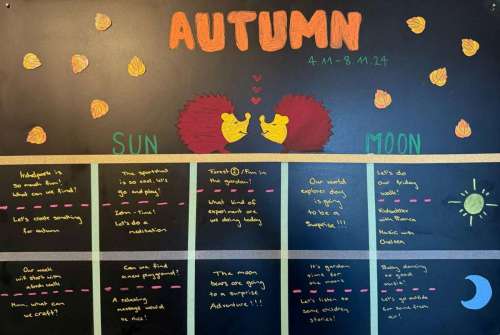 AUTUMN
4.11-8.11.24
SUN
MOON
is
so much fun!
What can we find?
Let's create something
for autumn
The sportshall
is so cool, let's
go and play!
Zen-Time!
Let's do a
meditation
Forest /Fun in
the garden!
What kind of
experiment are
we doing today
Our world
explorer day
is going
to be a
Surprise!!!
Let's do
our friday
walk!
with
Music with
Chelsea
Our week
will start with a
walk
Hmm, what can
we craft?
Can we find
a new playground?
A relaxing
massage would
be nice!
The moon
bears are going
to a surprise
Adventure!!!
It's garden
time for
the moon
Let's listen to
some exciting
stories!
Busy dancing
to good
music!
Let's go outside
for some fresh
air!